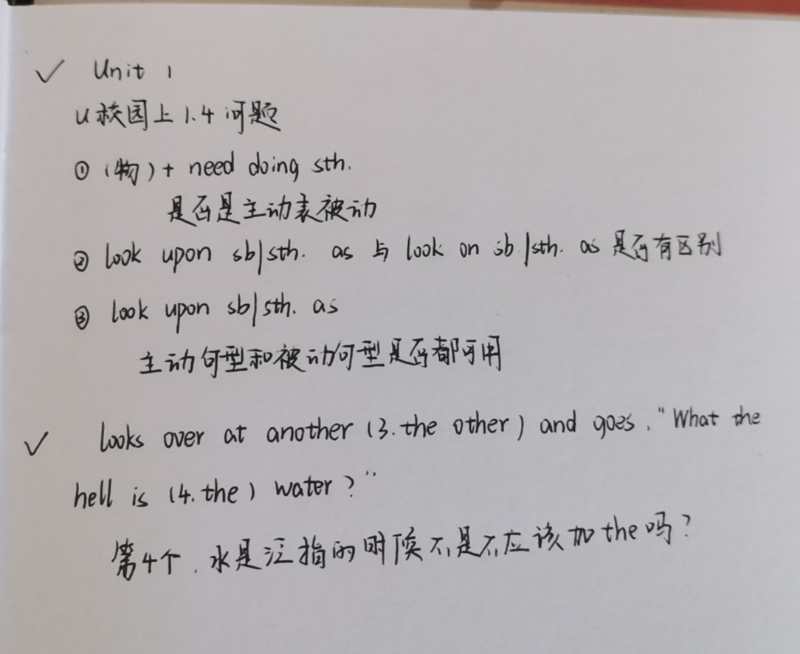 ✓ Unit 1
U校园上1.4问题
① (物) + need doing sth.
是否是主动表被动
② look upon sb/sth. as 与 look on sb/sth. as 是否有区别
③ look upon sb/sth. as
主动句型和被动句型是否都可用
✓ looks over at another (3. the other) and goes, "What the
hell is (4. the) water?"
第4个,水是泛指的时候不是不应该加the吗?